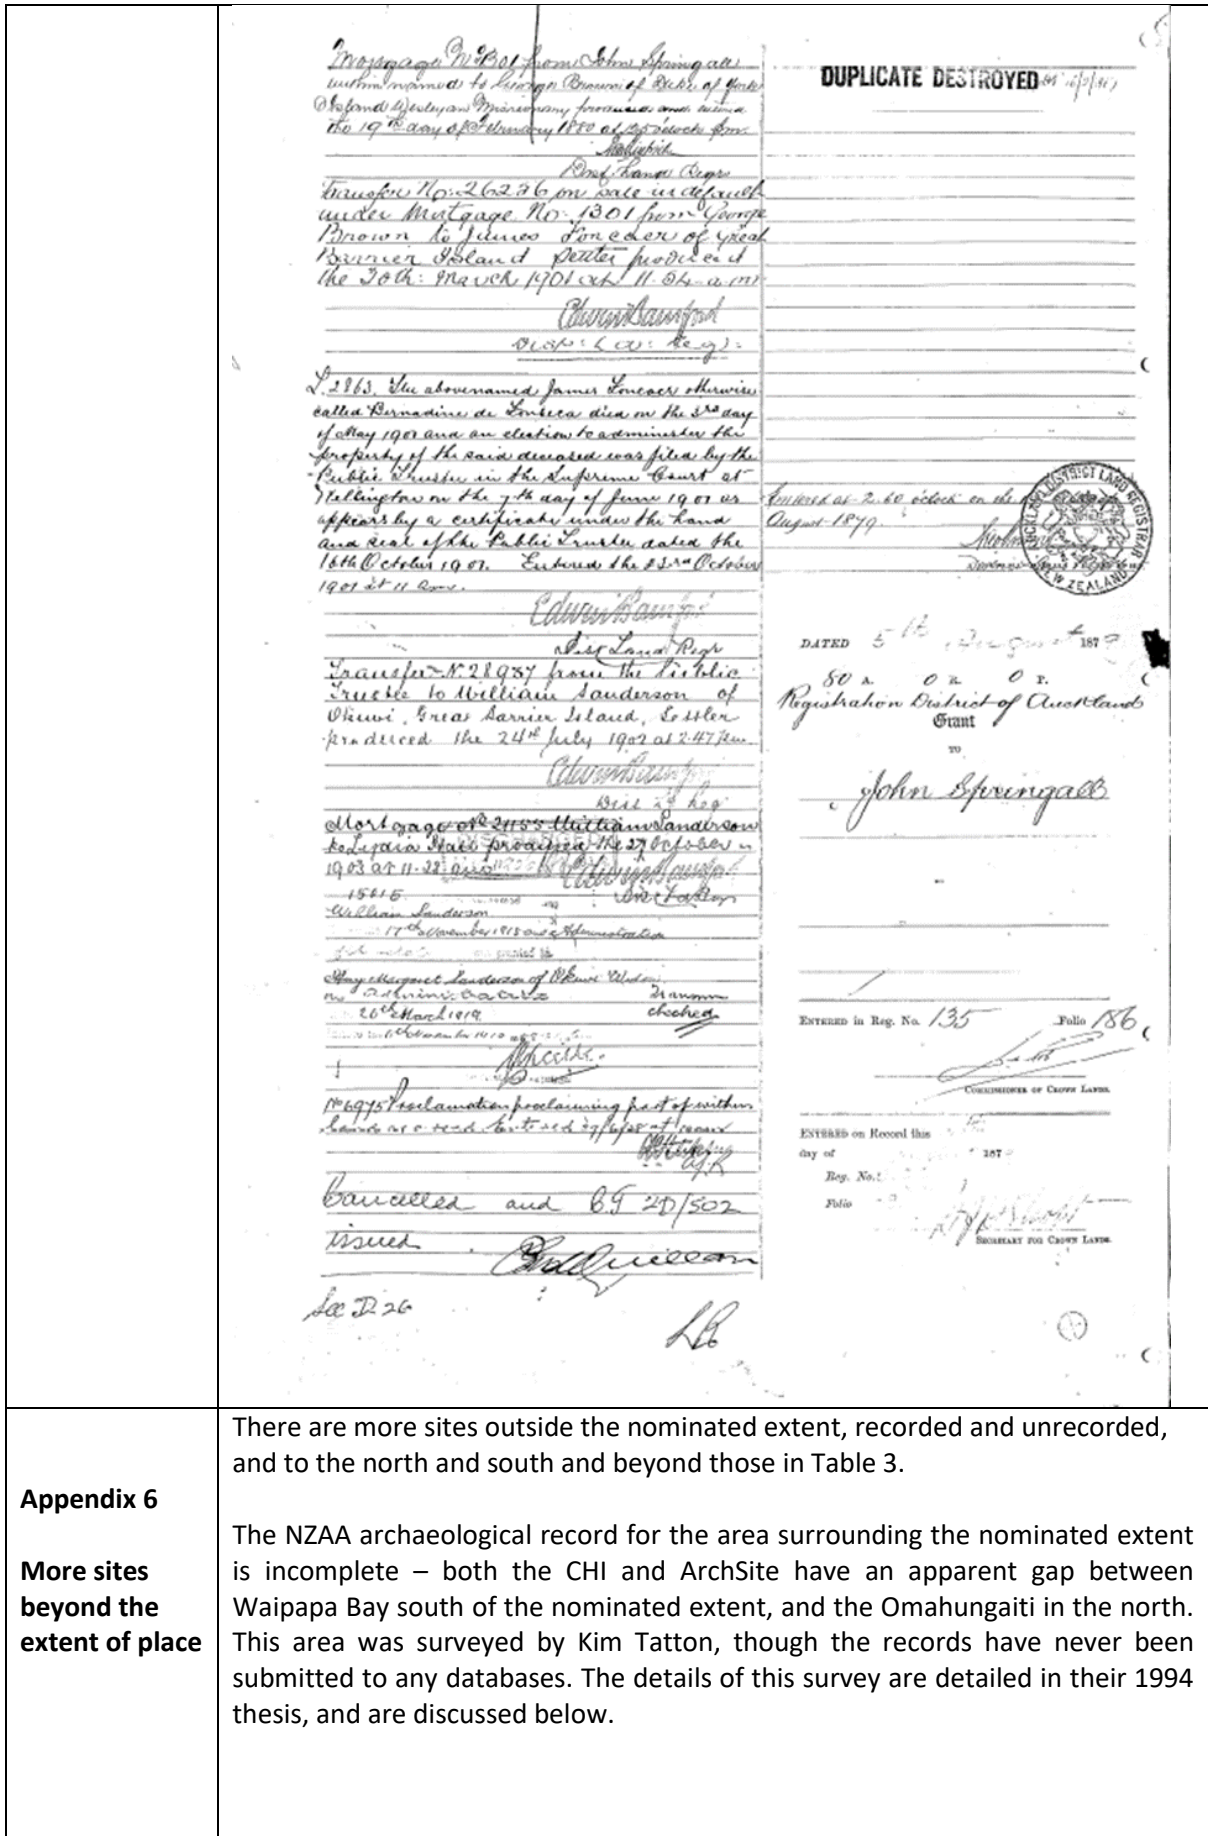 Mortgage No 1301 from John Springall
within named to George Brown of Duke of York
Island Wesleyan Missionary produced and entered
the 19th day of February 1880 at o'clock pm
Dist Land Regr
Transfer No: 26236 on sale in default
under Mortgage No: 1301 from George
Brown to James Foncaer of Great
Barrier Island Settler produced
the 30th: March 1901 at 11.54 a.m.
Edwin Bamford
L. 2863. The abovenamed James Foncaer otherwise
called Bernadine de Fonseca died on the 3rd day
of May 1901 and an election to administer the
property of the said deceased was filed by the
Public Trustee in the Supreme Court at
Wellington on the 7th day of June 1901 as
appears by a certificate under the hand
and seal of the Public Trustee dated the
16th October 1901. Entered the 23rd October
1901 at 11 am.
Edwin Bamford
Dist Land Regr
Transfer No. 28937 from the Public
Trustee to William Sanderson of
Okiwi, Great Barrier Island, Settler
produced the 24th July 1902 at 2.47 pm
Edwin Bamford
Mortgage No 21155 William Sanderson
to Lydia produced the 27 October
1903 at 11.28 am
15615
William Sanderson
17th November 1918 Administration
Margaret Sanderson of Okiwi Widow
26th March 1919
checked
No 6975 Proclamation proclaiming part of within
land as a road Entered 29/6/28 at
Cancelled and CT 2D/502
issued
See D. 26
DUPLICATE DESTROYED
Entered at o'clock on the
August 1879.
AUCKLAND DISTRICT LAND REGISTRAR
NEW ZEALAND
DATED 5th August 187
80 A. 0 R. 0 P.
Registration District of Auckland
Grant
TO
John Springall
ENTERED in Reg. No. 135 Folio 186
COMMISSIONER OF CROWN LANDS.
ENTERED on Record this
day of 187
Reg. No.
Folio
SECRETARY FOR CROWN LANDS.
Appendix 6
More sites
beyond the
extent of place
There are more sites outside the nominated extent, recorded and unrecorded,
and to the north and south and beyond those in Table 3.
The NZAA archaeological record for the area surrounding the nominated extent
is incomplete – both the CHI and ArchSite have an apparent gap between
Waipapa Bay south of the nominated extent, and the Omahungaiti in the north.
This area was surveyed by Kim Tatton, though the records have never been
submitted to any databases. The details of this survey are detailed in their 1994
thesis, and are discussed below.